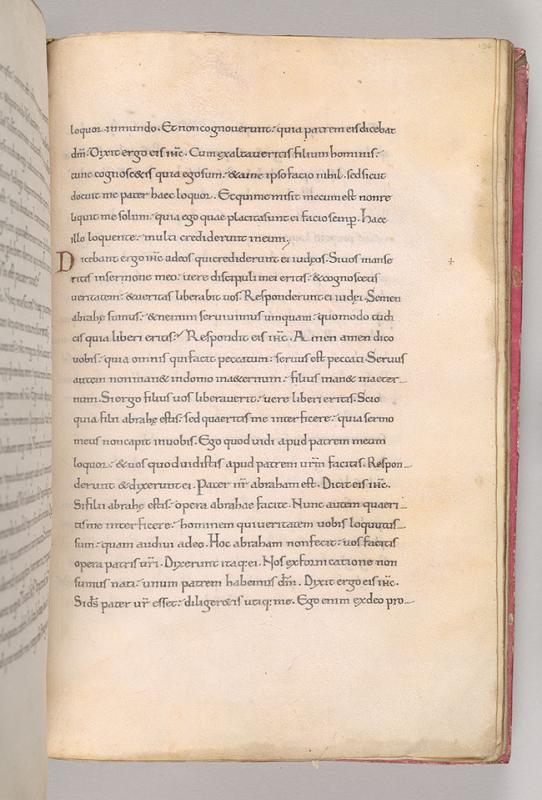 loquor inmundo. Et non cognoverunt: quia patrem eis dicebat
dm̄. Dixit ergo eis ihc̄. Cum exaltaveritis filium hominis:
tunc cognosc&is quia ego sum: & a me ipso facio nihil. sed sicut
docuit me pater haec loquor. Et qui me misit mecum est non re
liquit me solum: quia ego quae placita sunt ei facio semp̄. Haec
illo loquente: multi crediderunt in eum;
Dicebant ergo ihc̄ ad eos qui crediderunt ei iudęos. Si vos manse
ritis in sermone meo: vere discipuli mei eritis: & cognoscetis
veritatem: & veritas liberabit vos. Responderunt ei iudęi. Semen
abrahę sumus: & nemini servivimus umquam: quomodo tu di
cis quia liberi eritis: Respondit eis ihc̄. Amen amen dico
vobis: quia omnis qui facit peccatum: servus est peccati. Servus
autem non man& in domo in a&ernum: filius man& in aeter
num. Si ergo filius vos liberaverit: vere liberi eritis. Scio
quia filii abrahę estis: sed quaeritis me interficere: quia sermo
meus non capit in vobis. Ego quod vidi apud patrem meum
loquor: & vos quod vidistis apud patrem vrm̄ facitis. Respon
derunt & dixerunt ei. Pater nr̄ abraham est. Dicit eis ihc̄.
Si filii abrahę estis: opera abrahae facite. Nunc autem quaeri
tis me interficere: hominem qui veritatem vobis loquutus
sum: quam audivi a deo. Hoc abraham non fecit: vos facitis
opera patris vr̄i. Dixerunt itaq: ei. Nos ex fornicatione non
sumus nati: unum patrem habemus dm̄. Dixit ergo eis ihc̄.
Si ds̄ pater vr̄ esset: diliger&is utiq: me. Ego enim ex deo pro